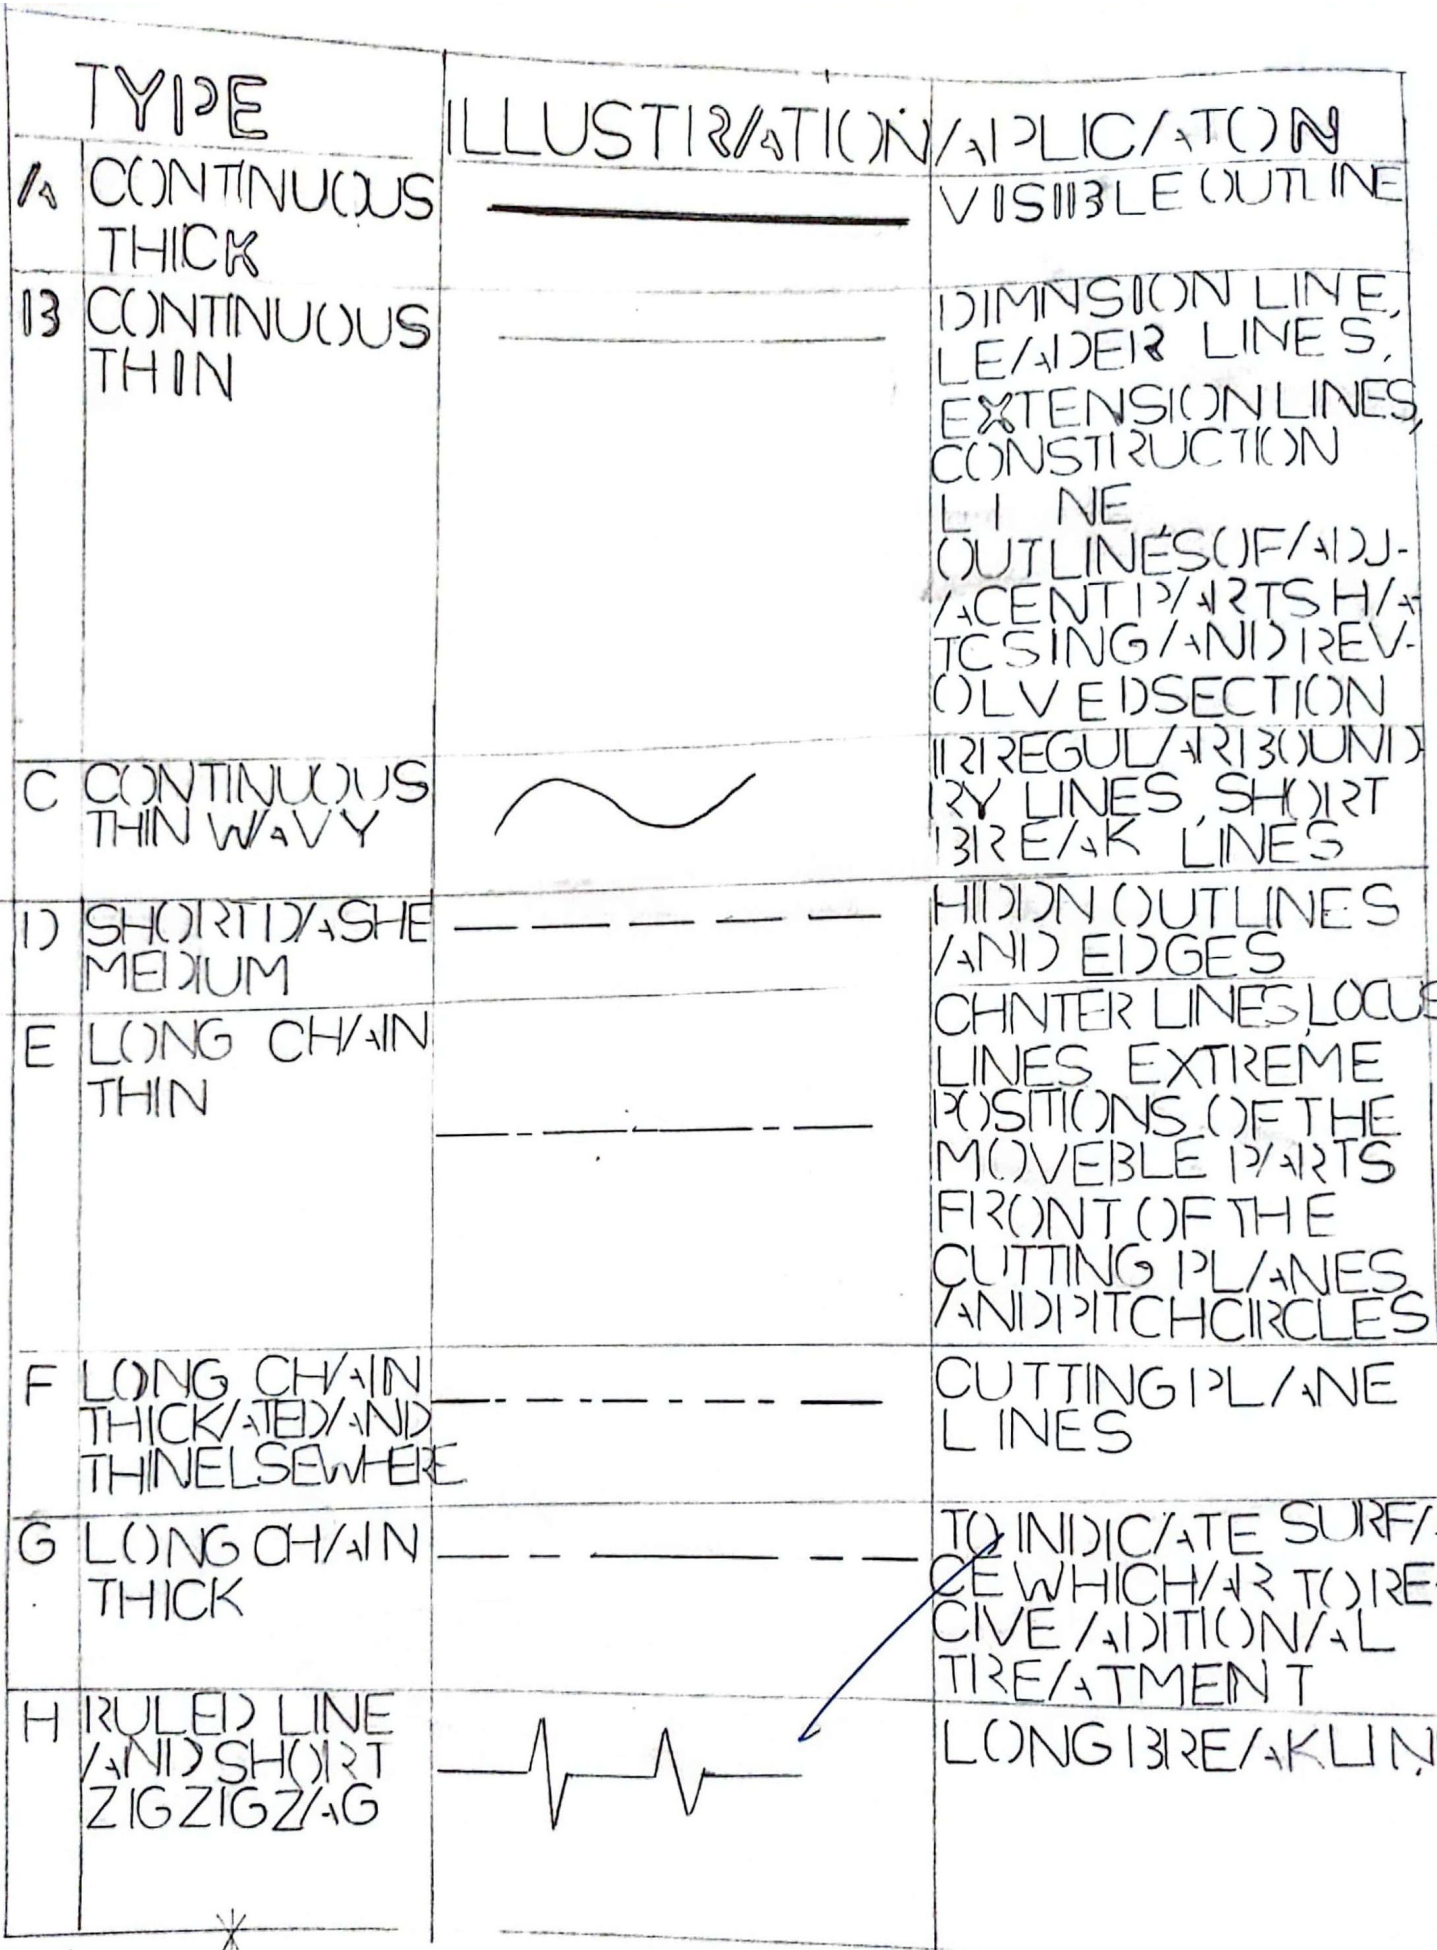 TYPE
ILLUSTRATION
APLICATON
A
CONTINUOUS
THICK
VISIBLE OUTLINE
B
CONTINUOUS
THIN
DIMNSION LINE,
LEADER LINES,
EXTENSION LINES,
CONSTRUCTION
LI NE
OUTLINES OF ADJ-
ACENT PARTS HA-
TCSING AND REV-
OLVED SECTION
C
CONTINUOUS
THIN WAVY
IRREGULAR BOUND
RY LINES, SHORT
BREAK LINES
D
SHORT DASHE
MEDIUM
HIDDN OUTLINES
AND EDGES
E
LONG CHAIN
THIN
CHNTER LINES, LOCUS
LINES EXTREME
POSITIONS OF THE
MOVEBLE PARTS
FRONT OF THE
CUTTING PLANES
AND PITCH CIRCLES
F
LONG CHAIN
THICK ATED AND
THIN ELSEWHERE
CUTTING PLANE
LINES
G
LONG CHAIN
THICK
TO INDICATE SURFA
CE WHICH AR TO RE-
CIVE ADITIONAL
TREATMENT
H
RULED LINE
AND SHORT
ZIGZIGZAG
LONG BREAK LIN